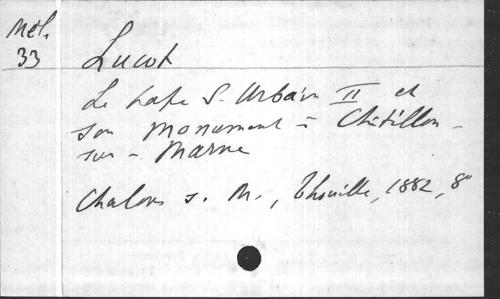 Mél.
33
Lucot
Le Pape S. Urbain II et
son monument à Châtillon-
sur-Marne
Chalons s. M., Thouille, 1882, 8°